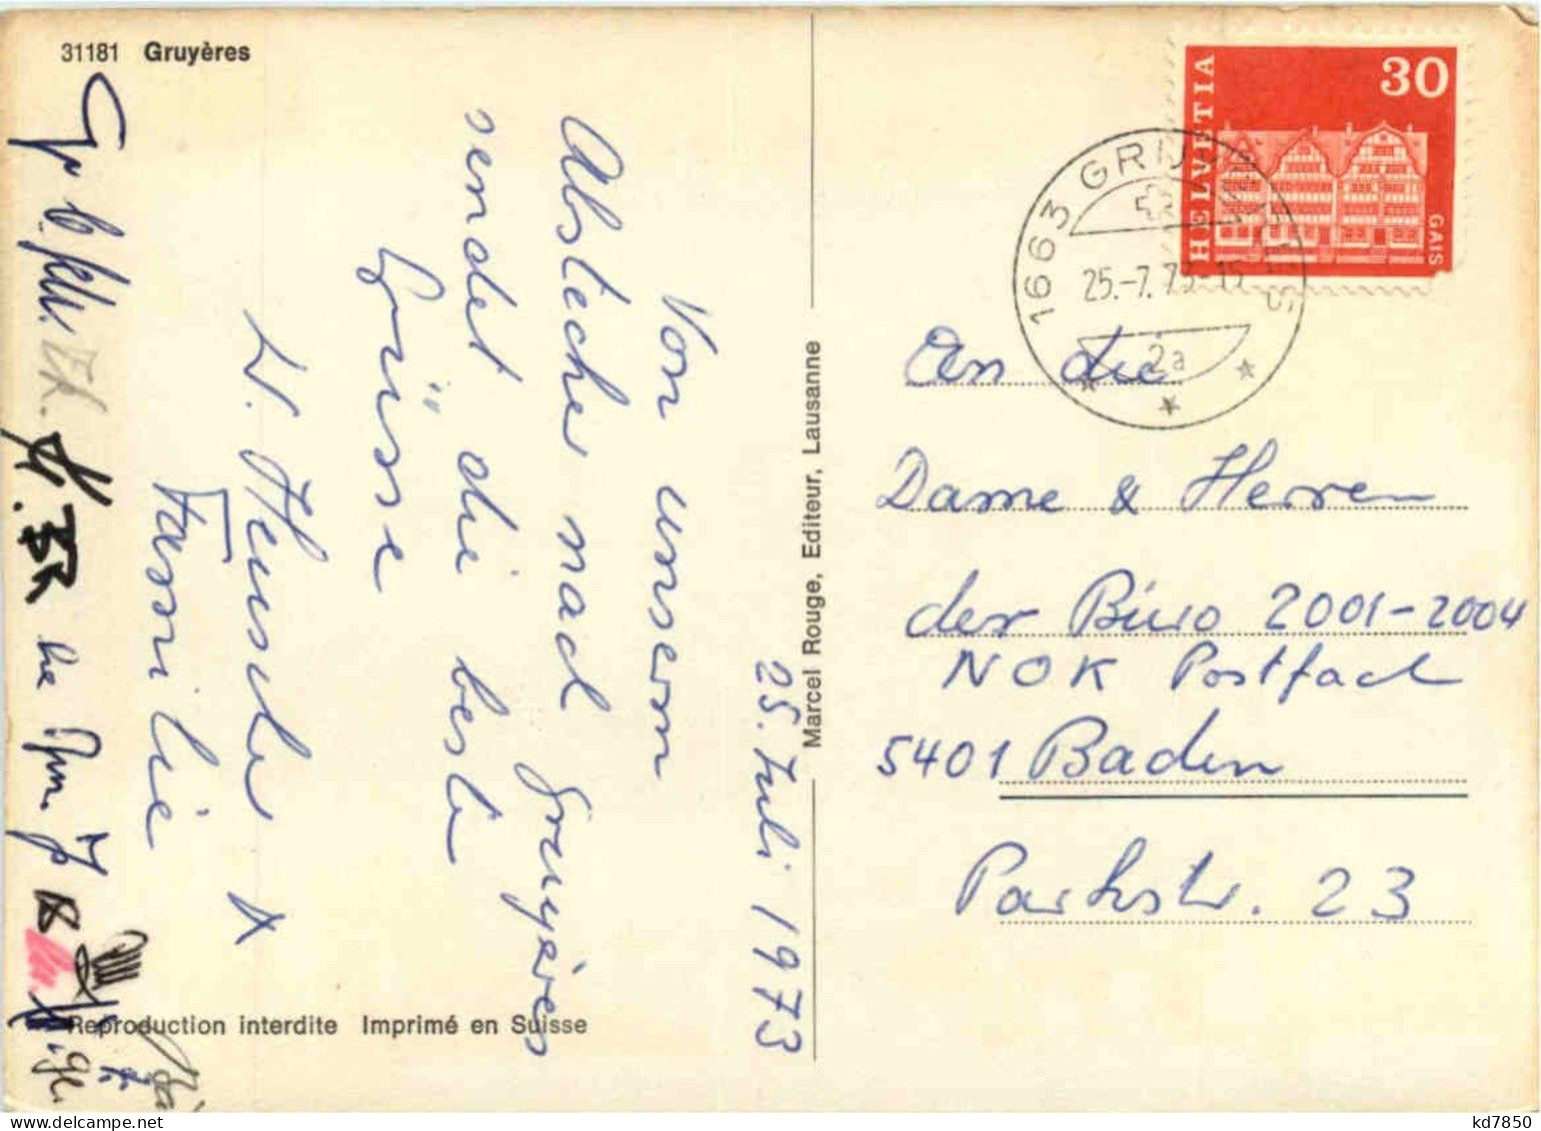 31181 Gruyères
25. Juli 1973
Von unserm
Abstecher nach Gruyères
sendet die beste
Grüsse
Familie
Marcel Rouge, Editeur, Lausanne
Reproduction interdite Imprimé en Suisse
HELVETIA
30
GAIS
1663 GRUYERES
25.-7.73-15
2a
An die
Dame & Herren
der Büro 2001-2004
NOK Postfach
5401 Baden
Parkstr. 23
kd7850